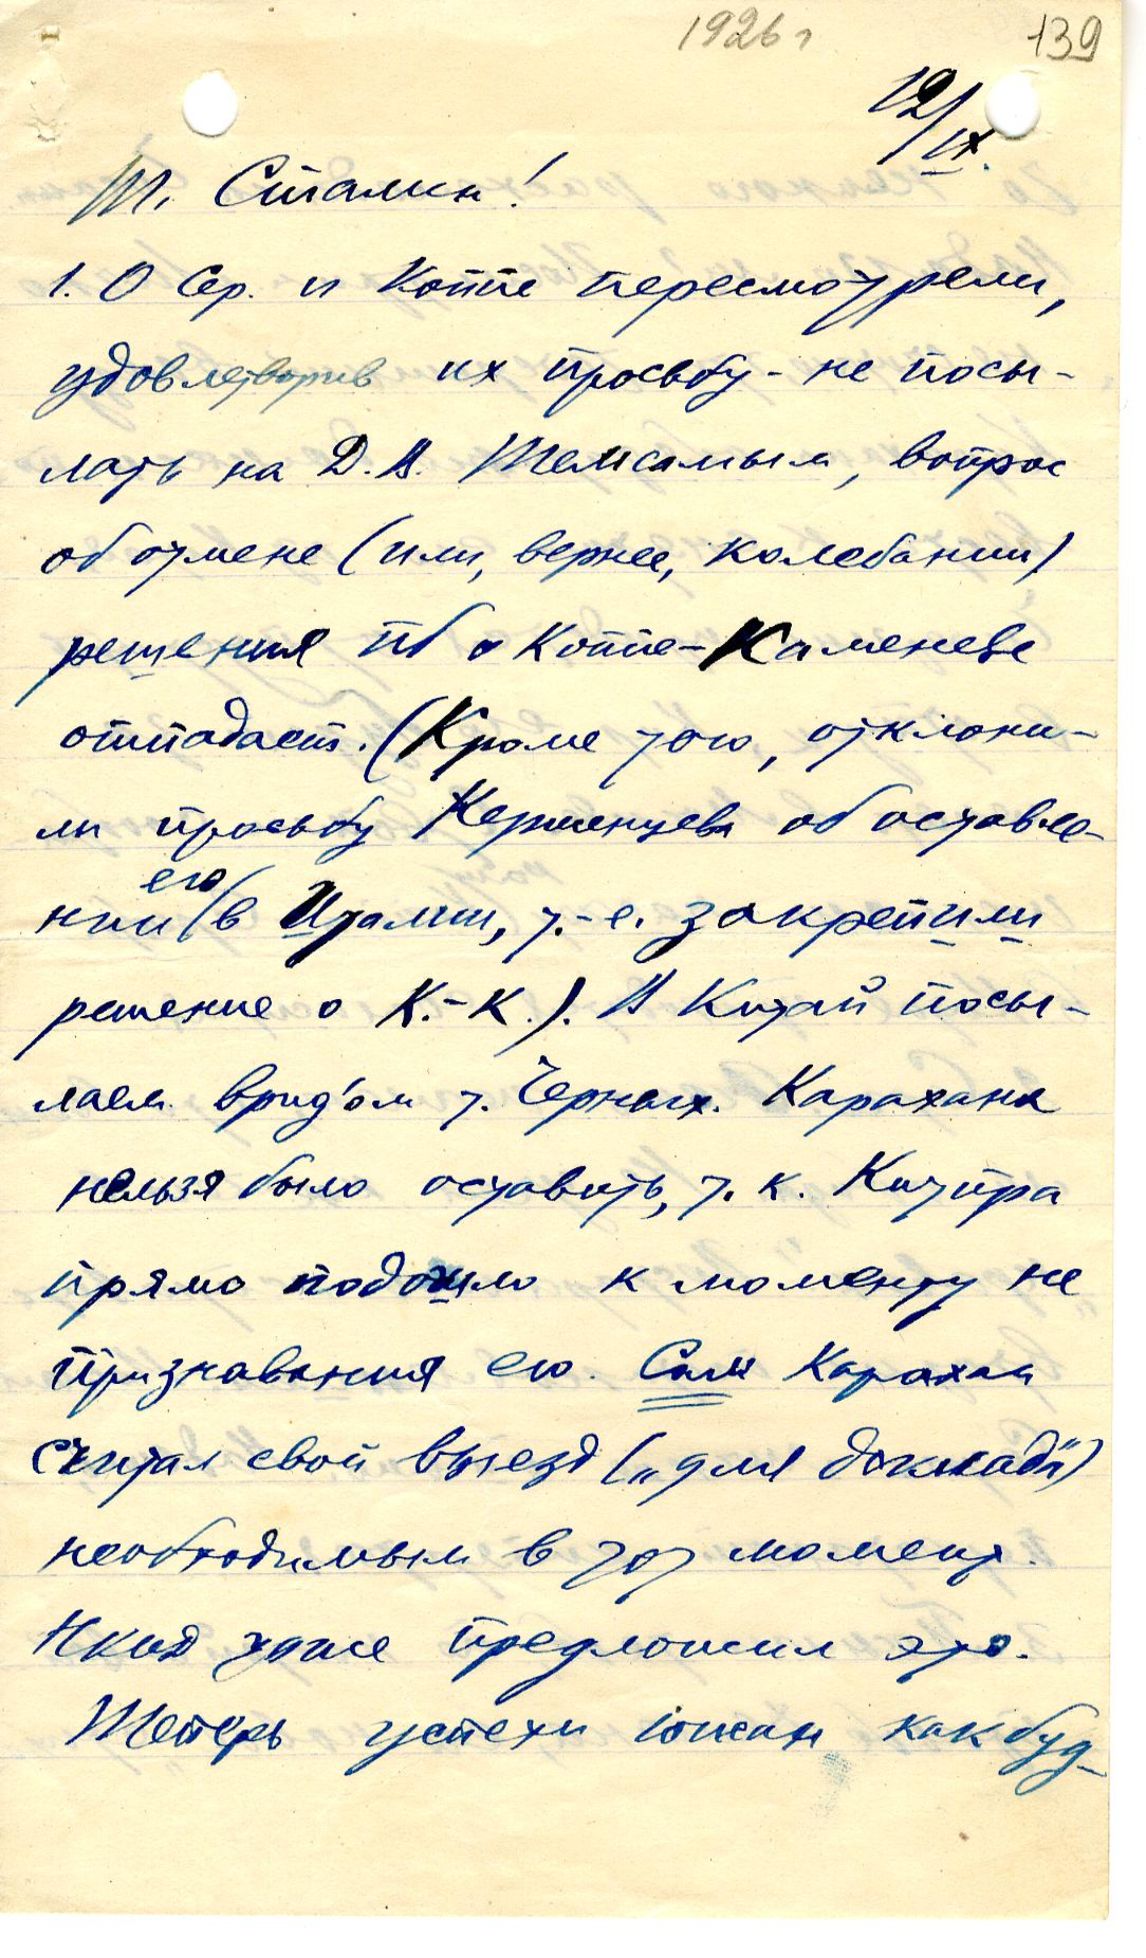 1926 г
139
12/IX.
Т. Сталин!
1. О Сер. и Коппе пересмотрели,
удовлетворив их просьбу - не посы-
лать на Д.В. Тем самым, вопрос
об отмене (или, вернее, колебании)
решения ПБ о Коппе-Каменеве
отпадает. (Кроме того, отклони-
ли просьбу Керженцева об оставле-
нии его в Италии, т.-е. закрепили
решение о К.-К.). В Китай посы-
лаем врид'ом т. Черных. Карахана
нельзя было оставить, т. к. Китпра
прямо подошло к моменту не
признавания его. Сам Карахан
считал свой выезд („для доклада")
необходимым в тот момент.
Нкид тоже предложил это.
Теперь успехи южан как буд-